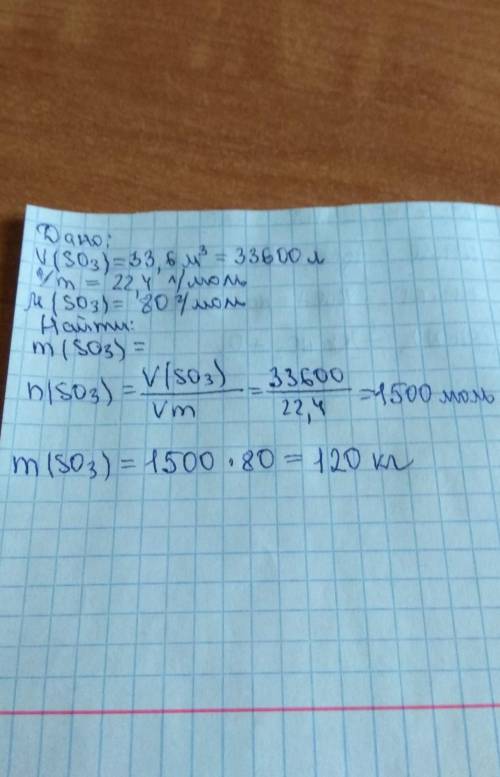 Дано:
V(SO3)=33,6 м³ = 33600 л
Vm = 22,4 л/моль
M(SO3)= 80 г/моль
Найти:
m(SO3)=
n(SO3) = V(SO3)/Vm = 33600/22,4 =1500 моль
m(SO3) = 1500 · 80 = 120 кг